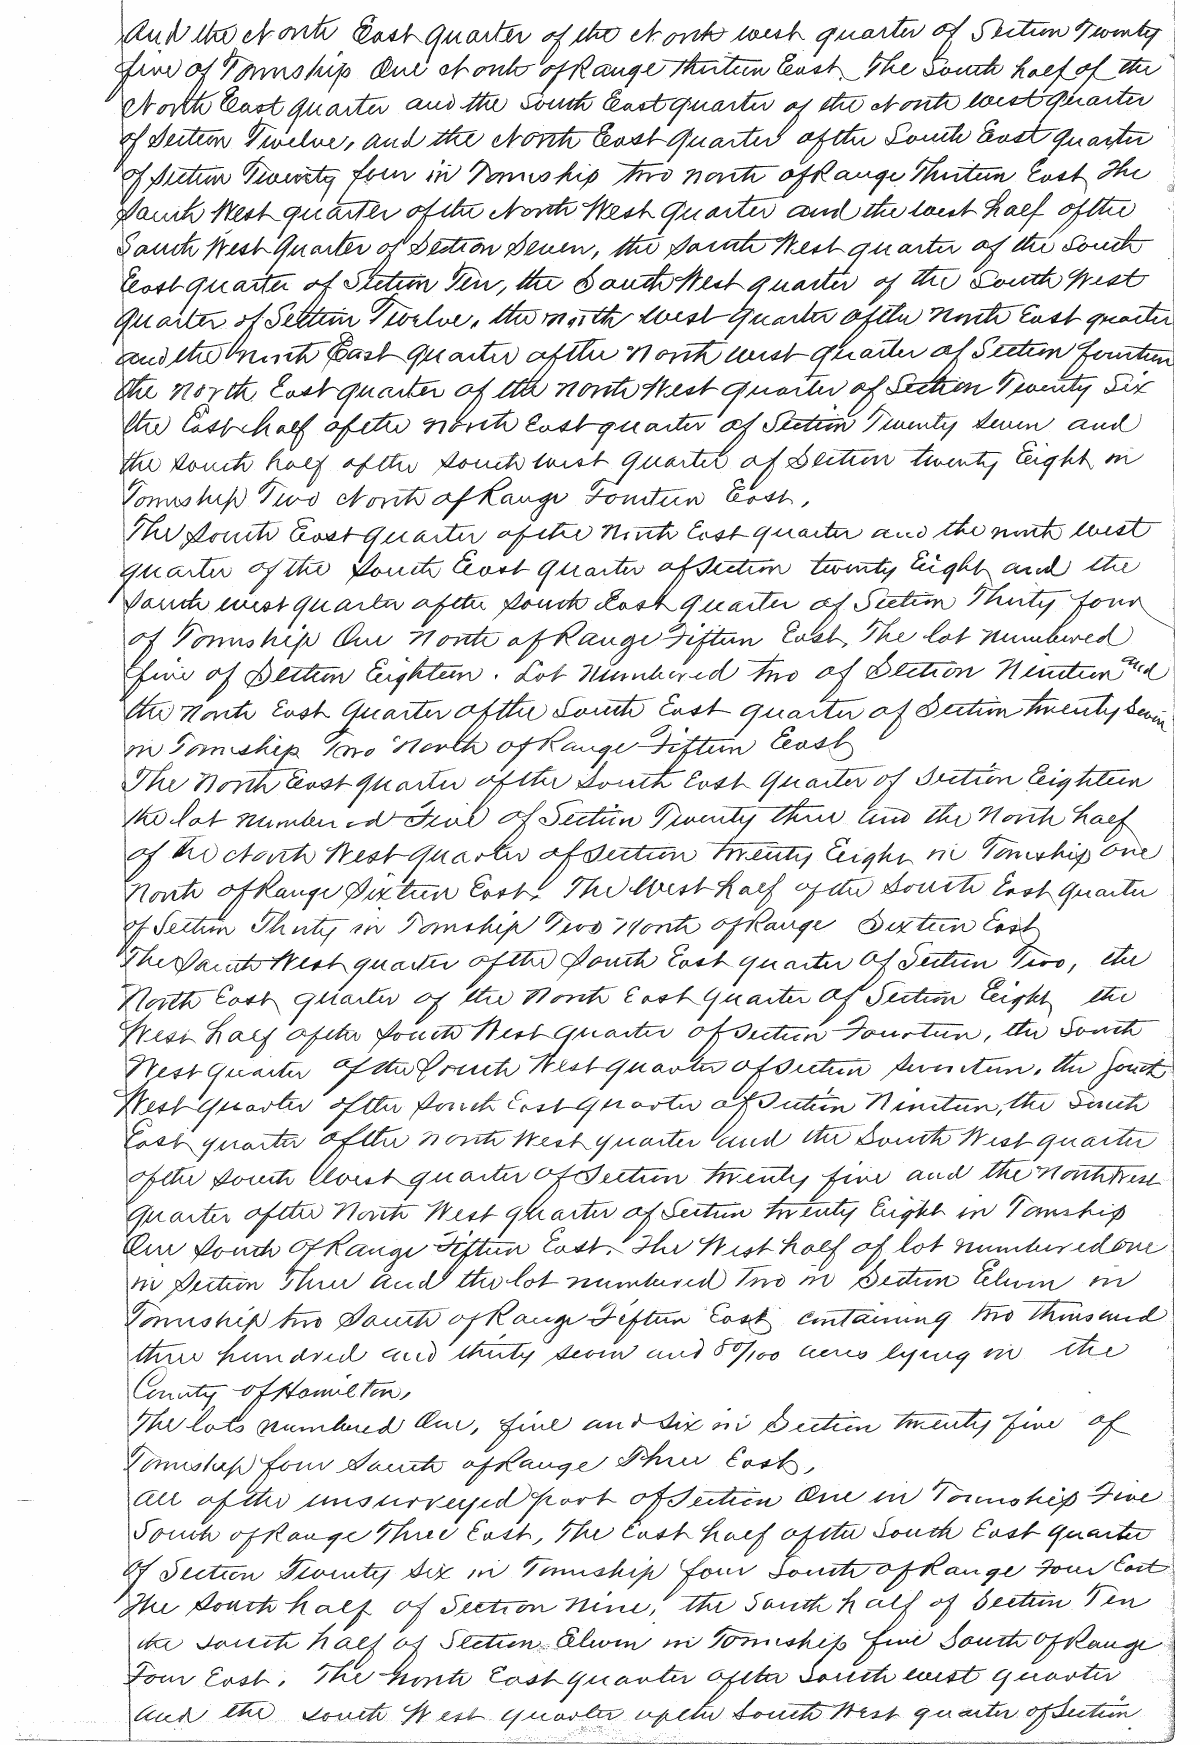 And the North East quarter of the North west quarter of Section Twenty
five of Township One North of Range Thirteen East The South half of the
North East quarter and the South East quarter of the North west quarter
of Section Twelve, and the North East Quarter of the South East quarter
of Section Twenty four in Township two north of Range Thirteen East The
South West quarter of the North West Quarter and the west half of the
South West Quarter of Section Seven, the South West quarter of the South
East quarter of Section Ten, the South West quarter of the South West
quarter of Section Twelve, the north west quarter of the North East quarter
and the north East quarter of the North west quarter of Section fourteen
the North East quarter of the North West quarter of Section Twenty Six
the East half of the north East quarter of Section Twenty Seven and
the South half of the South west quarter of Section twenty Eight in
Township Two North of Range Fourteen East.
The South East quarter of the North East quarter and the north west
quarter of the South East quarter of Section twenty Eight and the
South west quarter of the South East quarter of Section Thirty four
of Township One North of Range Fifteen East, The lot numbered
five of Section Eighteen. Lot Numbered two of Section Nineteen and
the North East Quarter of the South East quarter of Section twenty Seven
in Township Two North of Range Fifteen East
The North East quarter of the South East Quarter of Section Eighteen
the lot numbered Five of Section Twenty three and the North half
of the North West quarter of Section twenty Eight in Township One
North of Range Sixteen East. The West half of the South East quarter
of Section Thirty in Township Two North of Range Sixteen East
The South West quarter of the South East quarter of Section Two, the
North East quarter of the North East quarter of Section Eight the
West half of the South West quarter of Section Fourteen, the South
West quarter of the South West quarter of Section Seventeen, the South
West quarter of the South East quarter of Section Nineteen, the South
East quarter of the North West quarter and the South West quarter
of the South West quarter of Section twenty five and the North West
quarter of the North West quarter of Section twenty Eight in Township
One South of Range Fifteen East. The West half of lot numbered one
in Section Three and the lot numbered Two in Section Eleven in
Township two South of Range Fifteen East containing two thousand
three hundred and thirty seven and 80/100 acres lying in the
County of Hamilton,
The lots numbered One, five and six in Section twenty five of
Township four South of Range Three East,
All of the unsurveyed part of Section One in Township Five
South of Range Three East, The East half of the South East quarter
of Section Twenty Six in Township four South of Range Four East
The South half of Section Nine, the South half of Section Ten
the South half of Section Eleven in Township five South of Range
Four East. The North East quarter of the South west quarter
and the South West quarter of the South West quarter of Section